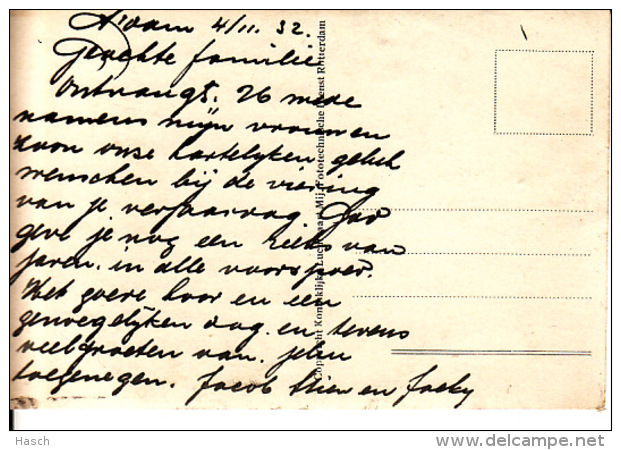 A'dam 4/11. 32.
Geachte familie
Ontvangt. 26 mede
namens mijn vrouw en
zoon onze hartelijken geluk
wenschen bij de viering
van je verjaarvag. God
geve je nog een reeks van
jaren. in alle voorspoed.
Het goede hoor en een
genoegelijken dag. en tevens
veel groeten van. jelui
toegenegen. Jacob Stien en Jacky
Copyright Koninklijke Luchtvaart Mij. Fototechnische Dienst Rotterdam
Hasch
www.delcampe.net